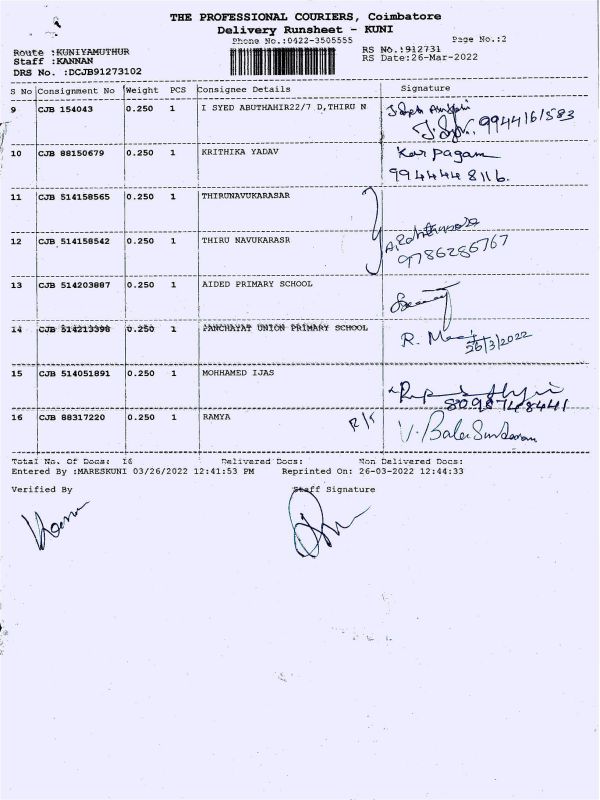 THE PROFESSIONAL COURIERS, Coimbatore
Delivery Runsheet - KUNI
Phone No.:0422-3505555 Page No.:2
Route :KUNIYAMUTHUR RS No.:912731
Staff :KANNAN RS Date:26-Mar-2022
DRS No. :DCJB91273102
S No Consignment No Weight PCS Consignee Details Signature
9 CJB 154043 0.250 1 I SYED ABUTHAHIR22/7 D,THIRU N
9944161583
10 CJB 88150679 0.250 1 KRITHIKA YADAV Karpagam
9944448116.
11 CJB 514158565 0.250 1 THIRUNAVUKARASAR
12 CJB 514158542 0.250 1 THIRU NAVUKARASR
9786286767
13 CJB 514203887 0.250 1 AIDED PRIMARY SCHOOL
14 CJB 514213398 0.250 1 PANCHAYAT UNION PRIMARY SCHOOL R.
26/3/2022
15 CJB 514051891 0.250 1 MOHHAMED IJAS
8098748441
16 CJB 88317220 0.250 1 RAMYA V. BalaSundaram
Total No. Of Docs: 16 Delivered Docs: Non Delivered Docs:
Entered By :MARESKUNI 03/26/2022 12:41:53 PM Reprinted On: 26-03-2022 12:44:33
Verified By Staff Signature